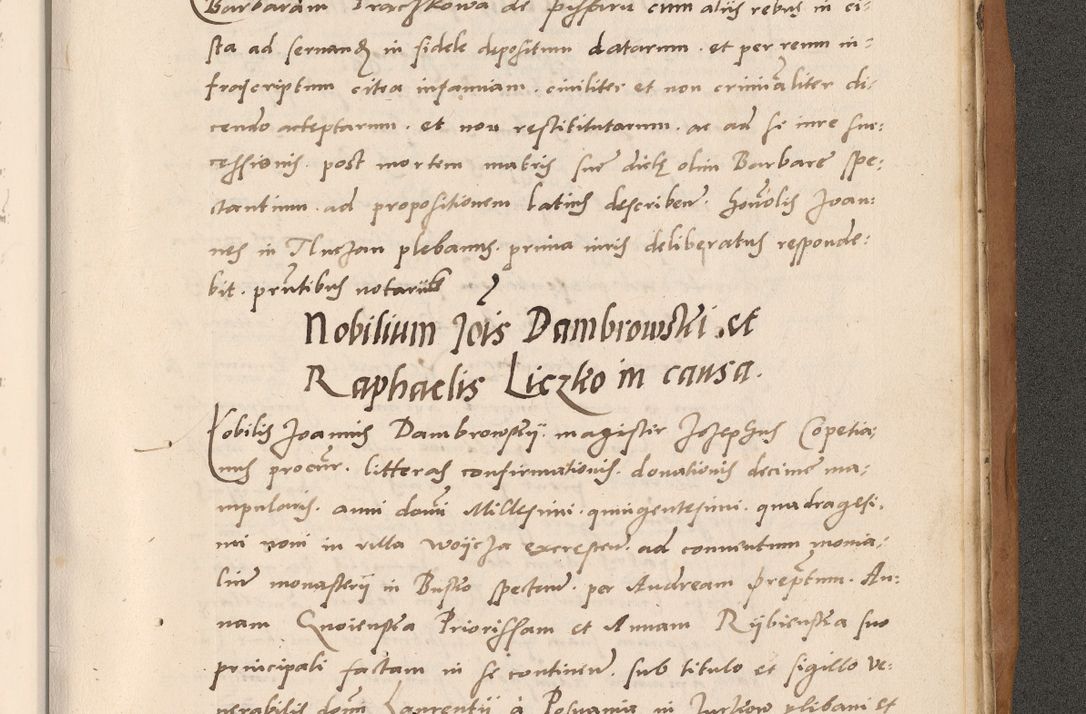 Barbaram Traczkowa de pissaru cum aliis rebus in ci-
sta ad servandum in fidele depositum datarum. et per reum in-
frascriptum citra infamiam. civiliter et non criminaliter di-
cendo acceptarum. et non restitutarum. ac ad se iure suc-
cessionis. post mortem matris sue dicte olim Barbare spe-
ctantium. ad propositionem latius describen. honolis Joan-
nes in Tluczan plebanus. prima iuris deliberatus responde-
bit. prntibus notariis
Nobilium Jois Dambrowski et
Raphaelis Liczko in causa.
Nobilis Joannis Dambrowskij. magister Josephus Copetia-
nus procur. litteras confirmationis. donationis decime ma-
nipularis. anni domi Millesimi. quingentesimi. quadragesi-
mi noni in villa woijcza excrescen. ad conventum monia-
lium monasterij in Busko specten. per Andream preptum. An-
nam Gnoienska Priorissam et Annam Rijbienska suo
principali factam in se continen. sub titulo et sigillo ve-
nerabilis domi Laurentii a Posnania in plebani et